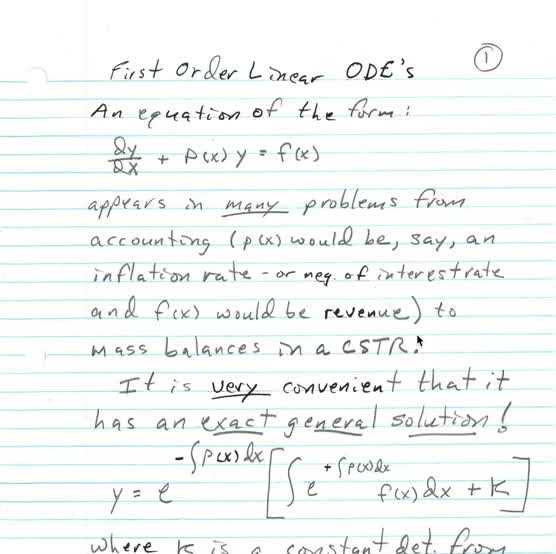 First Order Linear ODE's ①
An equation of the form:
dy/dx + p(x) y = f(x)
appears in many problems from
accounting (p(x) would be, say, an
inflation rate - or neg. of interest rate
and f(x) would be revenue) to
mass balances in a CSTR.
It is very convenient that it
has an exact general solution!
y = e^(-∫p(x)dx) [∫e^(+∫p(x)dx) f(x)dx + K]
where K is a constant det. from